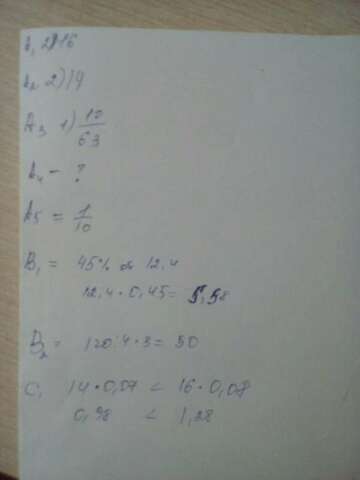 A₁ 2)16
A₂ 2)14
A₃ 1) 10/63
A₄ - ?
A5 = 1/10
B₁ = 45% от 12,4
12,4 · 0,45 = 5,58
B₂ = 120:4·3 = 90
C₁ 14·0,07 < 16·0,08
0,98 < 1,28